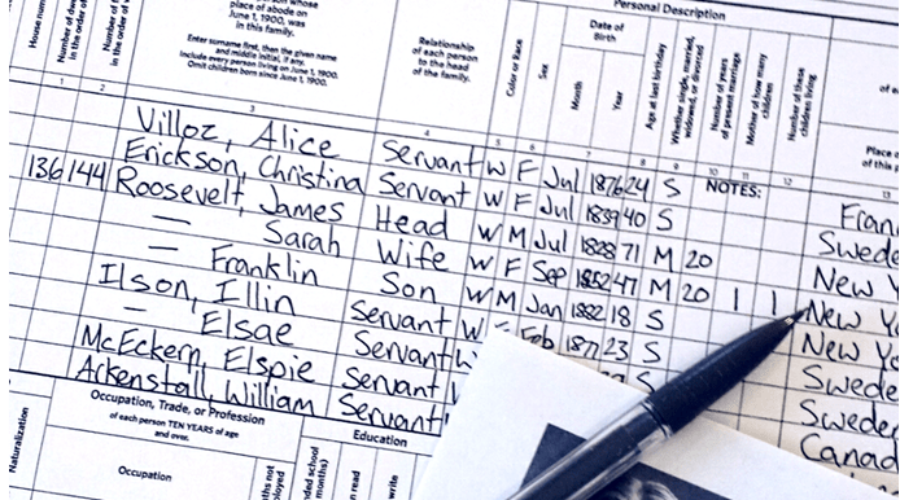 Personal Description
place of abode on
June 1, 1900, was
in this family.
Enter surname first, then the given name
and middle initial, if any.
Include every person living on June 1, 1900.
Omit children born since June 1, 1900.
Relationship
of each person
to the head
of the family.
Color or Race
Sex
Date of
Birth
Month
Year
Age at last birthday
Whether single, married,
widowed, or divorced
Number of years
of present marriage
Mother of how many
children
Number of these
children living
Place
of this
1 2 3 4 5 6 7 8 9 10 11 12 13
NOTES:
Villoz, Alice Servant W F Jul 1876 24 S
Erickson, Christina Servant W F Jul 1839 40 S
136 144 Roosevelt, James Head W M Jul 1828 71 M 20
— Sarah Wife W F Sep 1852 47 M 20 1 1 New
— Franklin Son W M Jan 1882 18 S New
Ilson, Illin Servant W Feb 1877 23 S
— Elsae Servant S
McEckern, Elspie Servant
Ackenstall, William Servant
Swede
Canada
Naturalization
Occupation, Trade, or Profession
of each person TEN YEARS of age
and over.
Occupation
Education
read
write